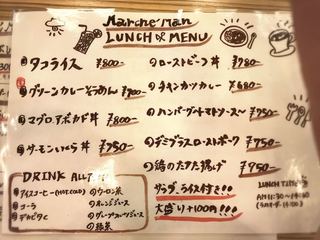 Marche Man
LUNCH MENU
タコライス ¥800-
グリーンカレーそうめん ¥900-
マグロアボカド丼 ¥800-
サーモンいくら丼 ¥950-
ローストビーフ丼 ¥980-
チキンカツカレー ¥680-
ハンバーグ〜トマトソース〜 ¥950-
デミグラスローストポーク ¥950-
鶏のたつた揚げ ¥750-
サラダ、ライス付き!!!
大盛り+100円!!!
DRINK ALL
アイスコーヒー(HOT,COLD)
コーラ
カルピス
ウーロン茶
オレンジジュース
グレープフルーツジュース
緑茶
LUNCH TIME
AM11:30〜14:30